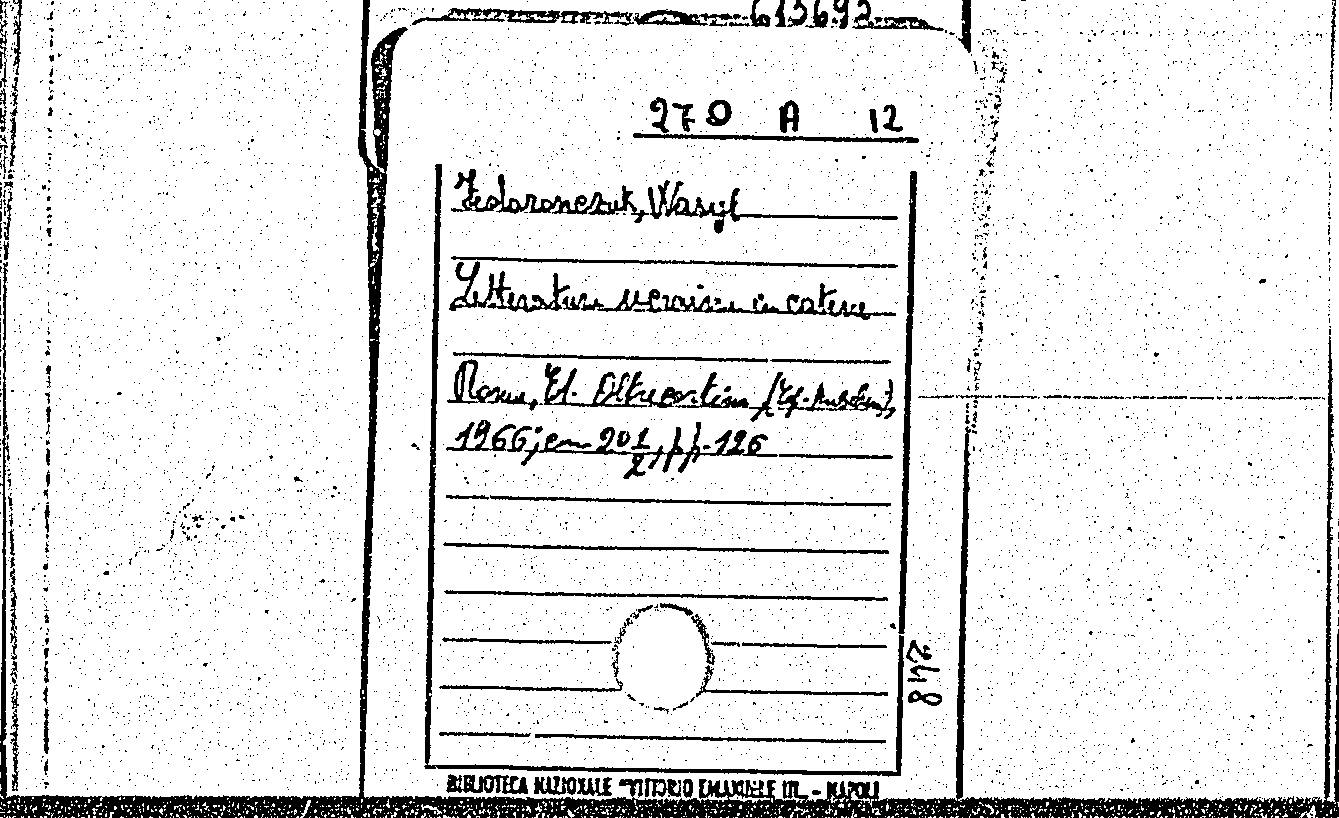 613693
270 A 12
Fedoronczuk, Wasyl
Letteratura ucraina in catene
Roma, Ed. Oltrecortina
1966; cm 20 1/2, pp. 126
248
BIBLIOTECA NAZIONALE "VITTORIO EMANUELE III" - NAPOLI